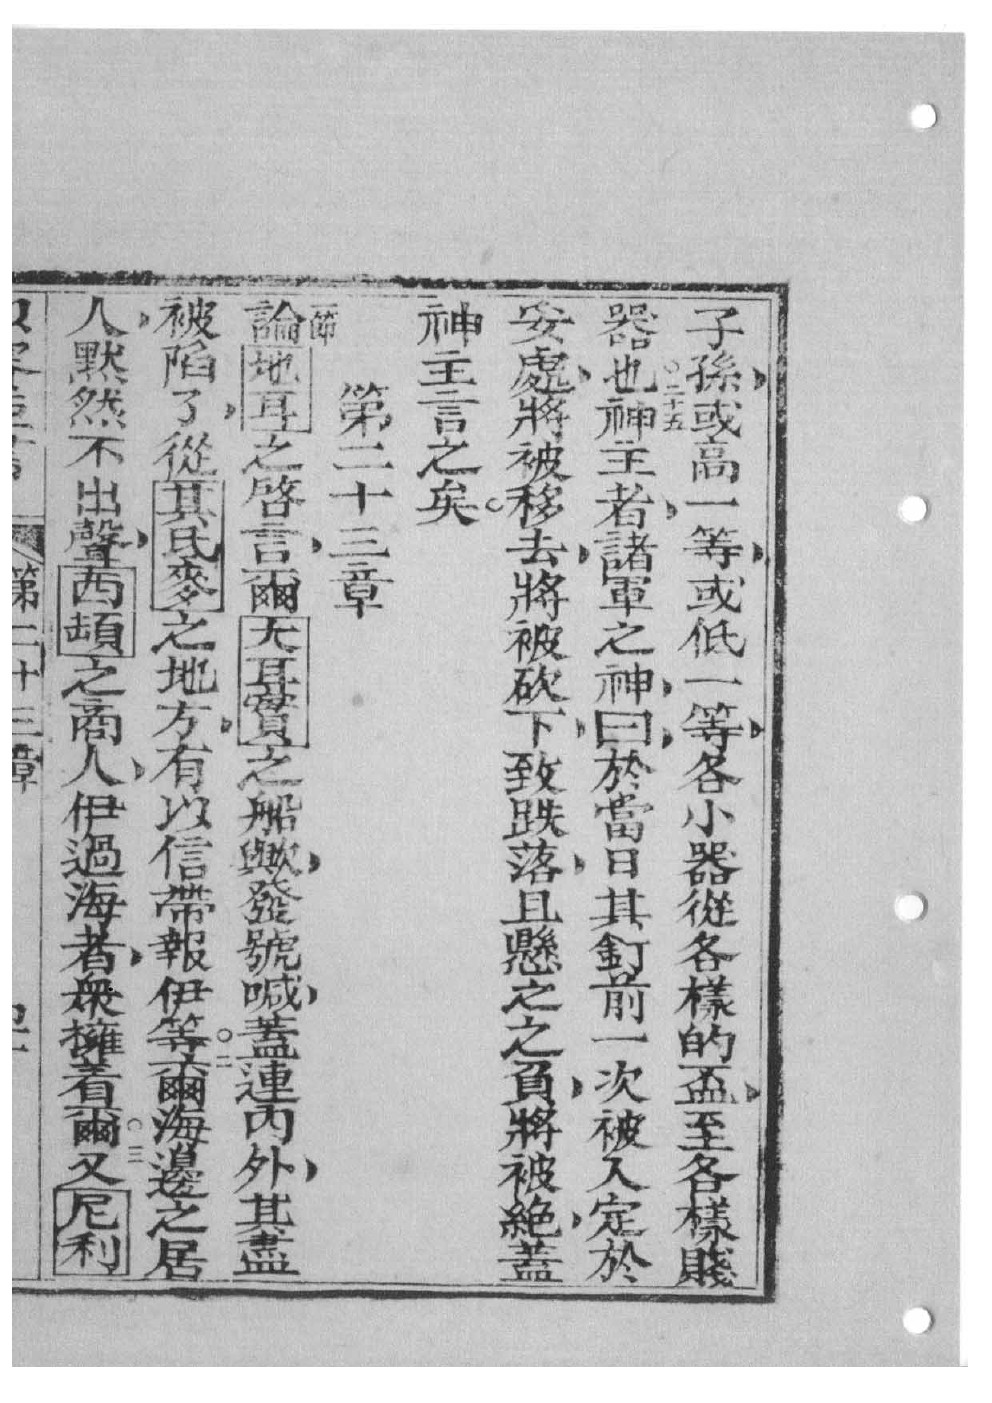 子孫或高一等或低一等各小器從各樣的盃至各樣賤
器也○二十五神主者諸軍之神曰於當日其釘前一次被入定於
安處將被移去將被砍下致跌落且懸之之負將被絕蓋
神主言之矣
第二十三章
一節論地耳之啓言爾大耳實之船歟發號喊蓋連內外其盡
被陷了從其氏麥之地方有以信帶報伊等○二爾海邊之居
人默然不出聲西頓之商人伊過海者衆擁着爾○三又尼利
第二十三章